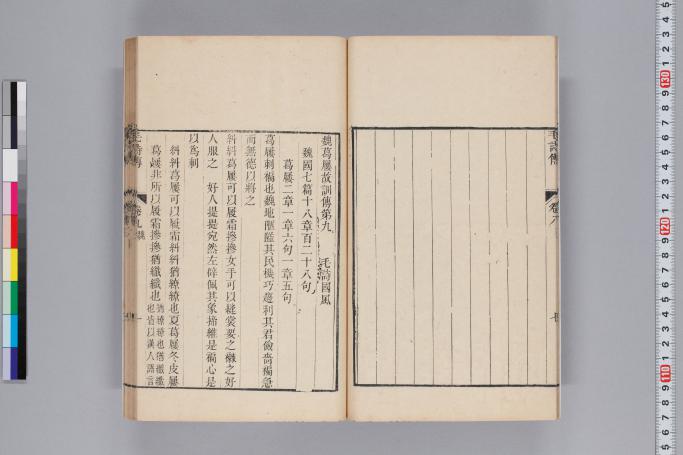 毛詩傳
卷八
魏葛屨故訓傳第九 毛詩國風
魏國七篇十八章百二十八句
葛屨二章一章六句一章五句
葛屨刺褊也魏地陿隘其民機巧趨利其君儉嗇褊急
而無德以將之
糾糾葛屨可以履霜摻摻女手可以縫裳要之襋之好
人服之 好人提提宛然左辟佩其象揥維是褊心是
以爲刺
糾糾葛屨可以履霜糾糾猶繚繚也夏葛屨冬皮屨
葛屨非所以履霜摻摻猶纖纖也
猶繚繚也猶纖纖
也皆以漢人語言
毛詩傳
卷九
一
130
120
110